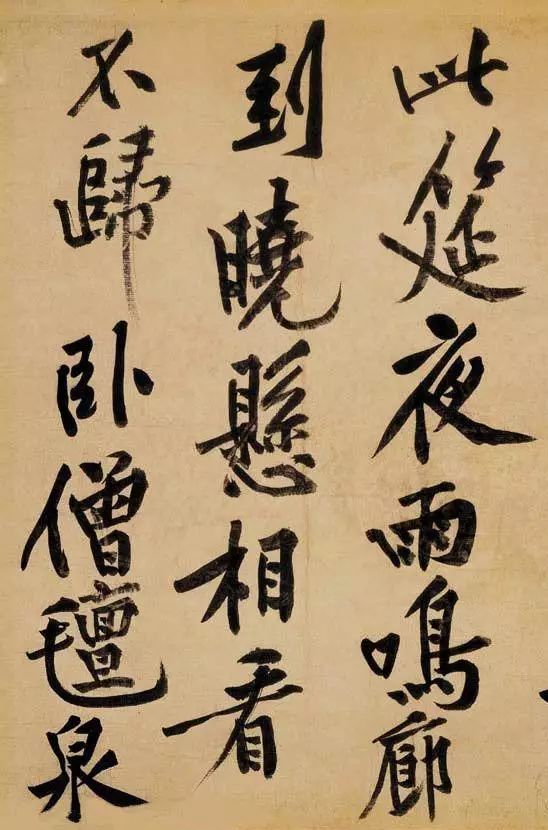 此筵夜雨鳴廊
到曉懸相看
不歸臥僧氊泉